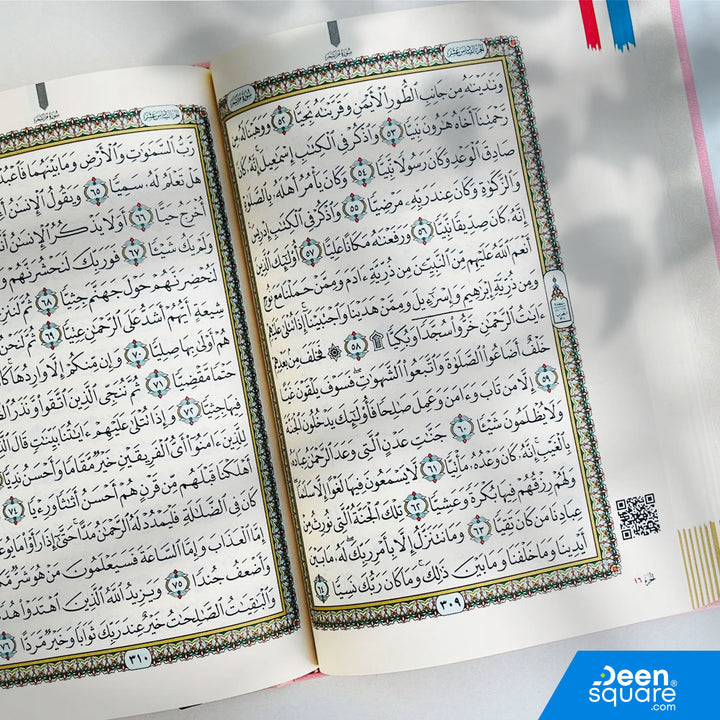 سُورَةُ مَرْيَمَ
الجُزْءُ السَّادِسَ عَشَرَ
وَنَٰدَيْنَٰهُ مِن جَانِبِ ٱلطُّورِ ٱلْأَيْمَنِ وَقَرَّبْنَٰهُ نَجِيًّا ٥٢ وَوَهَبْنَا لَهُۥ
رَّحْمَتِنَآ أَخَاهُ هَٰرُونَ نَبِيًّا ٥٣ وَٱذْكُرْ فِى ٱلْكِتَٰبِ إِسْمَٰعِيلَ إِنَّهُۥ كَانَ
صَادِقَ ٱلْوَعْدِ وَكَانَ رَسُولًا نَّبِيًّا ٥٤ وَكَانَ يَأْمُرُ أَهْلَهُۥ بِٱلصَّلَوٰةِ
وَٱلزَّكَوٰةِ وَكَانَ عِندَ رَبِّهِۦ مَرْضِيًّا ٥٥ وَٱذْكُرْ فِى ٱلْكِتَٰبِ إِدْرِيسَ
إِنَّهُۥ كَانَ صِدِّيقًا نَّبِيًّا ٥٦ وَرَفَعْنَٰهُ مَكَانًا عَلِيًّا ٥٧ أُو۟لَٰٓئِكَ ٱلَّذِينَ
أَنْعَمَ ٱللَّهُ عَلَيْهِم مِّنَ ٱلنَّبِيِّـۧنَ مِن ذُرِّيَّةِ ءَادَمَ وَمِمَّنْ حَمَلْنَا مَعَ نُوحٍ
وَمِن ذُرِّيَّةِ إِبْرَٰهِيمَ وَإِسْرَٰٓءِيلَ وَمِمَّنْ هَدَيْنَا وَٱجْتَبَيْنَآ إِذَا تُتْلَىٰ عَلَيْهِمْ
ءَايَٰتُ ٱلرَّحْمَٰنِ خَرُّوا۟ سُجَّدًا وَبُكِيًّا ۩ ٥٨ ۞ فَخَلَفَ مِنۢ بَعْدِهِمْ
خَلْفٌ أَضَاعُوا۟ ٱلصَّلَوٰةَ وَٱتَّبَعُوا۟ ٱلشَّهَوَٰتِ فَسَوْفَ يَلْقَوْنَ غَيًّا
٥٩ إِلَّا مَن تَابَ وَءَامَنَ وَعَمِلَ صَٰلِحًا فَأُو۟لَٰٓئِكَ يَدْخُلُونَ ٱلْجَنَّةَ
وَلَا يُظْلَمُونَ شَيْـًٔا ٦٠ جَنَّٰتِ عَدْنٍ ٱلَّتِى وَعَدَ ٱلرَّحْمَٰنُ عِبَادَهُۥ
بِٱلْغَيْبِ إِنَّهُۥ كَانَ وَعْدُهُۥ مَأْتِيًّا ٦١ لَّا يَسْمَعُونَ فِيهَا لَغْوًا إِلَّا سَلَٰمًا
وَلَهُمْ رِزْقُهُمْ فِيهَا بُكْرَةً وَعَشِيًّا ٦٢ تِلْكَ ٱلْجَنَّةُ ٱلَّتِى نُورِثُ مِنْ
عِبَادِنَا مَن كَانَ تَقِيًّا ٦٣ وَمَا نَتَنَزَّلُ إِلَّا بِأَمْرِ رَبِّكَ لَهُۥ مَا بَيْنَ
أَيْدِينَا وَمَا خَلْفَنَا وَمَا بَيْنَ ذَٰلِكَ وَمَا كَانَ رَبُّكَ نَسِيًّا ٦٤
٣٠٩
١٦
سُورَةُ مَرْيَمَ
الجُزْءُ السَّادِسَ عَشَرَ
رَّبُّ ٱلسَّمَٰوَٰتِ وَٱلْأَرْضِ وَمَا بَيْنَهُمَا
هَلْ تَعْلَمُ لَهُۥ سَمِيًّا ٦٥ وَيَقُولُ ٱلْإِنسَٰنُ
أُخْرَجُ حَيًّا ٦٦ أَوَلَا يَذْكُرُ ٱلْإِنسَٰنُ
وَلَمْ يَكُ شَيْـًٔا ٦٧ فَوَرَبِّكَ لَنَحْشُرَنَّهُمْ
لَنُحْضِرَنَّهُمْ حَوْلَ جَهَنَّمَ جِثِيًّا ٦٨ ثُمَّ
شِيعَةٍ أَيُّهُمْ أَشَدُّ عَلَى ٱلرَّحْمَٰنِ عِتِيًّا ٦٩ ثُمَّ
هُمْ أَوْلَىٰ بِهَا صِلِيًّا ٧٠ وَإِن مِّنكُمْ إِلَّا وَارِدُهَا
حَتْمًا مَّقْضِيًّا ٧١ ثُمَّ نُنَجِّى ٱلَّذِينَ ٱتَّقَوا۟ وَّنَذَرُ
فِيهَا جِثِيًّا ٧٢ وَإِذَا تُتْلَىٰ عَلَيْهِمْ ءَايَٰتُنَا بَيِّنَٰتٍ قَالَ
لِلَّذِينَ ءَامَنُوٓا۟ أَىُّ ٱلْفَرِيقَيْنِ خَيْرٌ مَّقَامًا وَأَحْسَنُ
أَهْلَكْنَا قَبْلَهُم مِّن قَرْنٍ هُمْ أَحْسَنُ أَثَٰثًا وَرِءْيًا
كَانَ فِى ٱلضَّلَٰلَةِ فَلْيَمْدُدْ لَهُ ٱلرَّحْمَٰنُ مَدًّا حَتَّىٰٓ إِذَا رَأَوْا۟ مَا
إِمَّا ٱلْعَذَابَ وَإِمَّا ٱلسَّاعَةَ فَسَيَعْلَمُونَ مَنْ هُوَ شَرٌّ
وَأَضْعَفُ جُندًا ٧٥ وَيَزِيدُ ٱللَّهُ ٱلَّذِينَ ٱهْتَدَوْا۟ هُدًى
وَٱلْبَٰقِيَٰتُ ٱلصَّٰلِحَٰتُ خَيْرٌ عِندَ رَبِّكَ ثَوَابًا وَخَيْرٌ مَّرَدًّا ٧٦
٣١٠
Deen
square®
.com